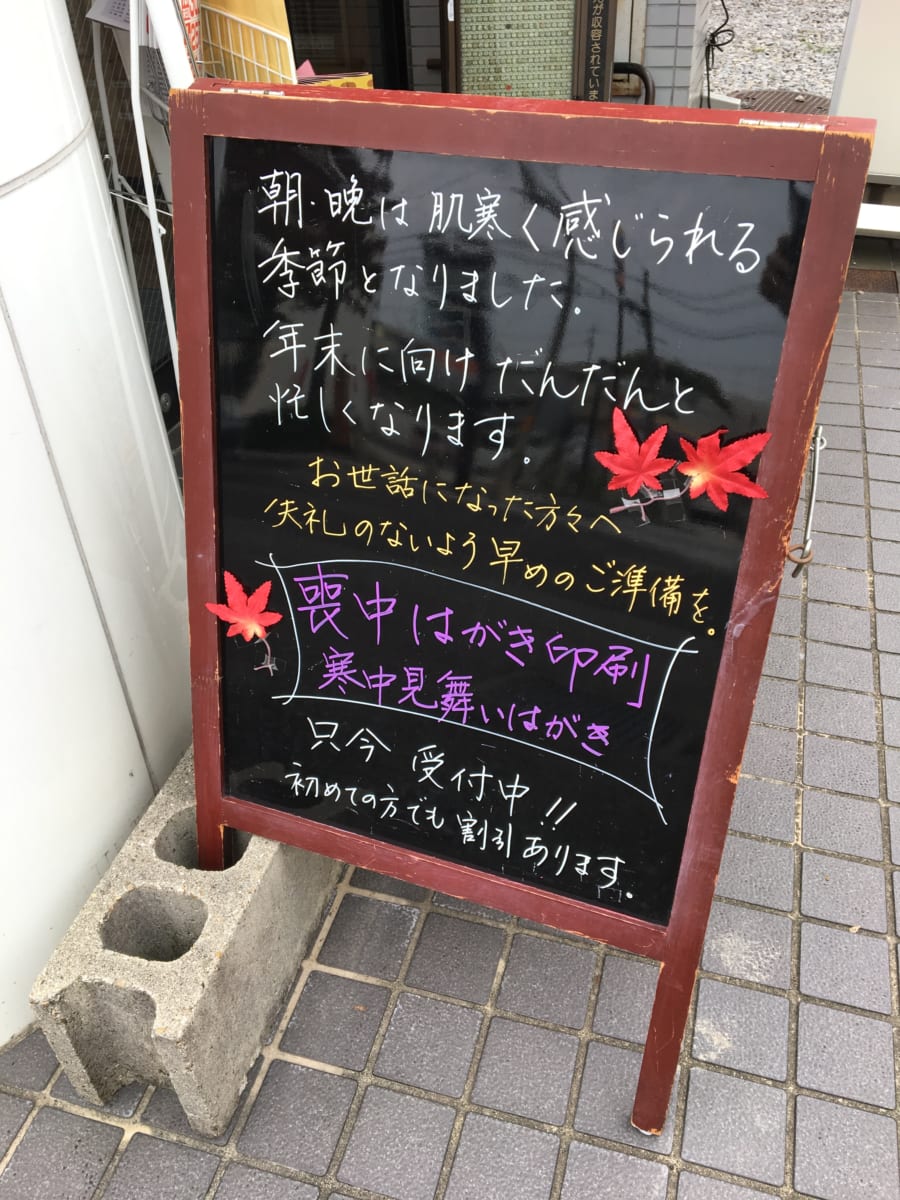 が収容されていま
朝・晩は 肌寒く感じられる
季節となりました。
年末に向け だんだんと
忙しくなります。
お世話になった方々へ
失礼のないよう早めのご準備を。
喪中はがき印刷
寒中見舞いはがき
只今 受付中!!
初めての方でも 割引あります。